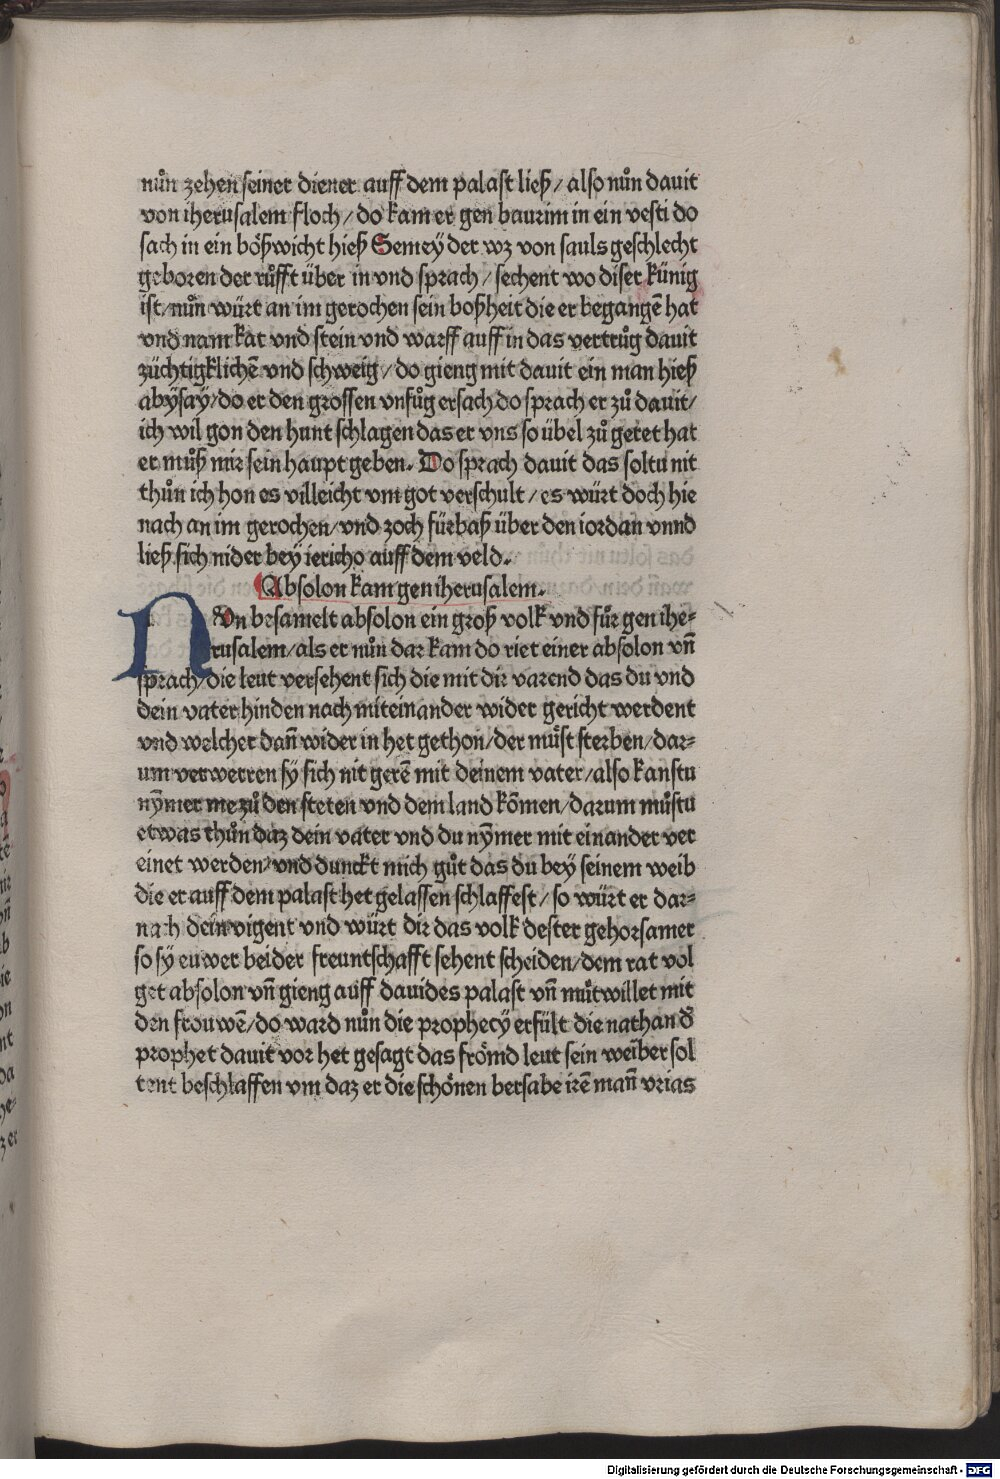 nůn zehen seiner diener auff dem palast ließ / also nůn dauit
von iherusalem floch / do kam er gen baurim in ein vesti do
sach in ein bößwicht hieß Semeÿ der wz von sauls geschlecht
geboren der růfft über in vnd sprach / sechent wo diser künig
ist / nůn würt an im gerochen sein boßheit die er begangē hat
vnd nam kat vnd stein vnd warff auff in das vertrůg dauit
züchtigklichē vnd schweig / do gieng mit dauit ein man hieß
abÿsaÿ / do er den grossen vnfůg ersach do sprach er zů dauit /
ich wil gon den hunt schlagen das er vns so übel zů geret hat
er můß mir sein haupt geben. Do sprach dauit das soltu nit
thůn ich hon es villeicht vm got verschult / es würt doch hie
nach an im gerochen / vnd zoch fürbaß über den iordan vnnd
ließ sich nider beÿ iericho auff dem veld.
Absolon kam gen iherusalem.
NVn besamelt absolon ein groß volk vnd fůr gen ihe⸗
rusalem / als er nůn dar kam do riet einer absolon vñ
sprach / die leut versehent sich die mit dir varend das du vnd
dein vater hinden nach miteinander wider gericht werdent
vnd welcher dañ wider in het gethon / der můst sterben / dar⸗
um verwerren sÿ sich nit gerē mit deinem vater / also kanstu
nÿmer me zů den steten vnd dem land kōmen / darum můstu
etwas thůn daz dein vater vnd du nÿmer mit einander ver
einet werden / vnd dunckt mich gůt das du beÿ seinem weib
die er auff dem palast het gelassen schlaffest / so würt er dar⸗
nach dein vigent vnd würt dir das volk dester gehorsamer
so sÿ euwer beider freuntschafft sehent scheiden / dem rat vol
get absolon vñ gieng auff dauides palast vñ můtwillet mit
den frouwē / do ward nůn die prophecÿ erfült die nathan d̄
prophet dauit vor het gesagt das frömd leut sein weiber sol
tent beschlaffen vm daz er die schönen bersabe irē mañ vrias
Digitalisierung gefördert durch die Deutsche Forschungsgemeinschaft - DFG